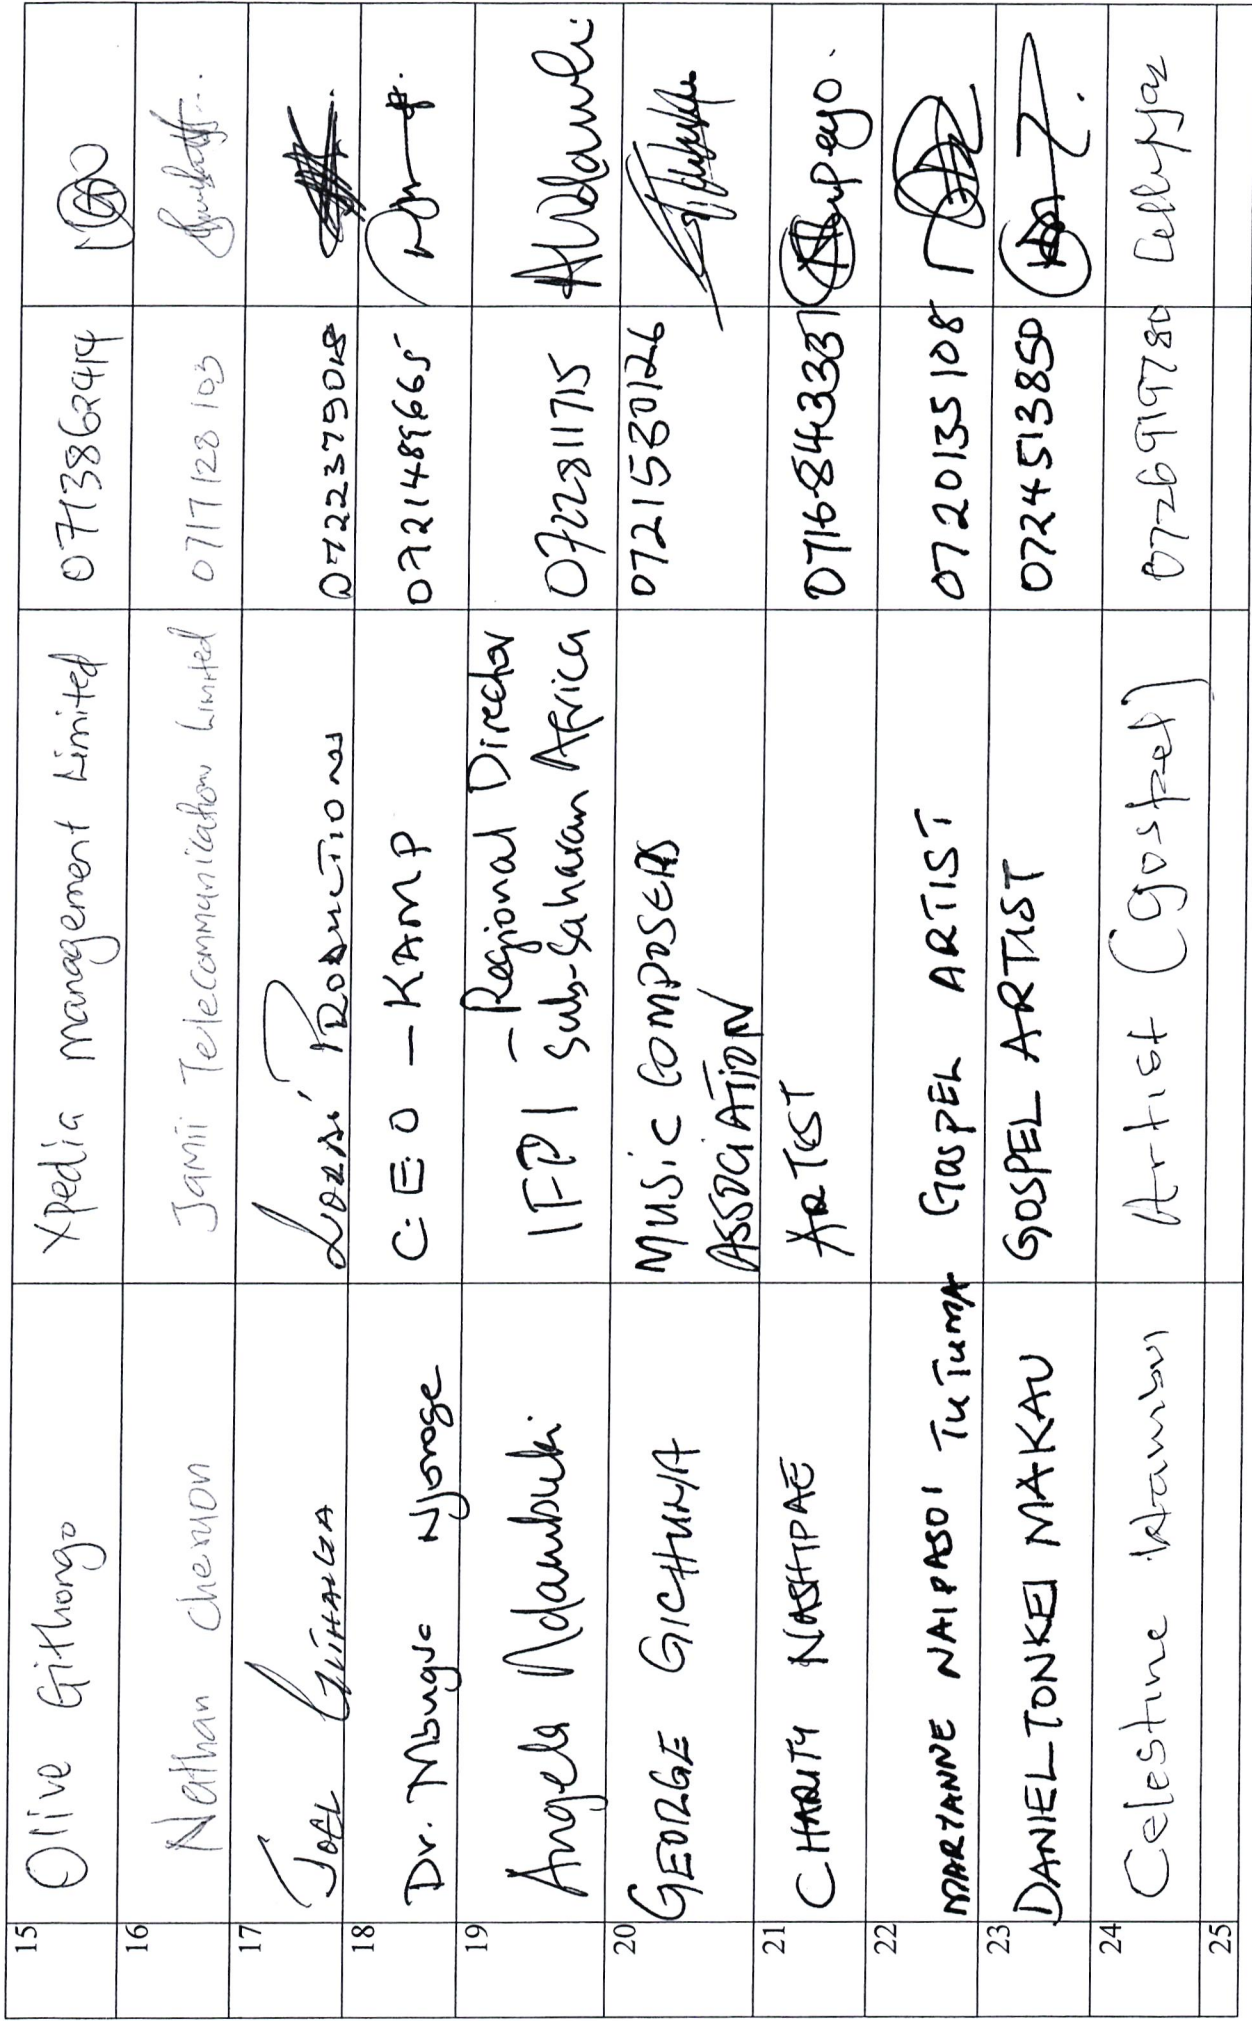 15 Olive Githongo Xpedia Management Limited 0713862414
16 Nathan Cheruon Jamii Telecommunication Limited 0717128103
17 JOEL PRODUCTIONS
18 Dr. Mbugua Njoroge C.E.O - KAMP 0721489665
19 Angela Ndambuki IFPI - Regional Director
Sub-Saharan Africa 0722811715 ANdambuki
20 GEORGE GICHUHA MUSIC COMPOSERS
ASSOCIATION 0721530126
21 CHARITY NASHIPAE ARTIST 0716843337
22 MARYANNE NAIPASOI TUTUMA GOSPEL ARTIST 0720135108
23 DANIEL TONKEI MAKAU GOSPEL ARTIST 0724513850
24 Celestine Artist (gospel) 0726919780
25